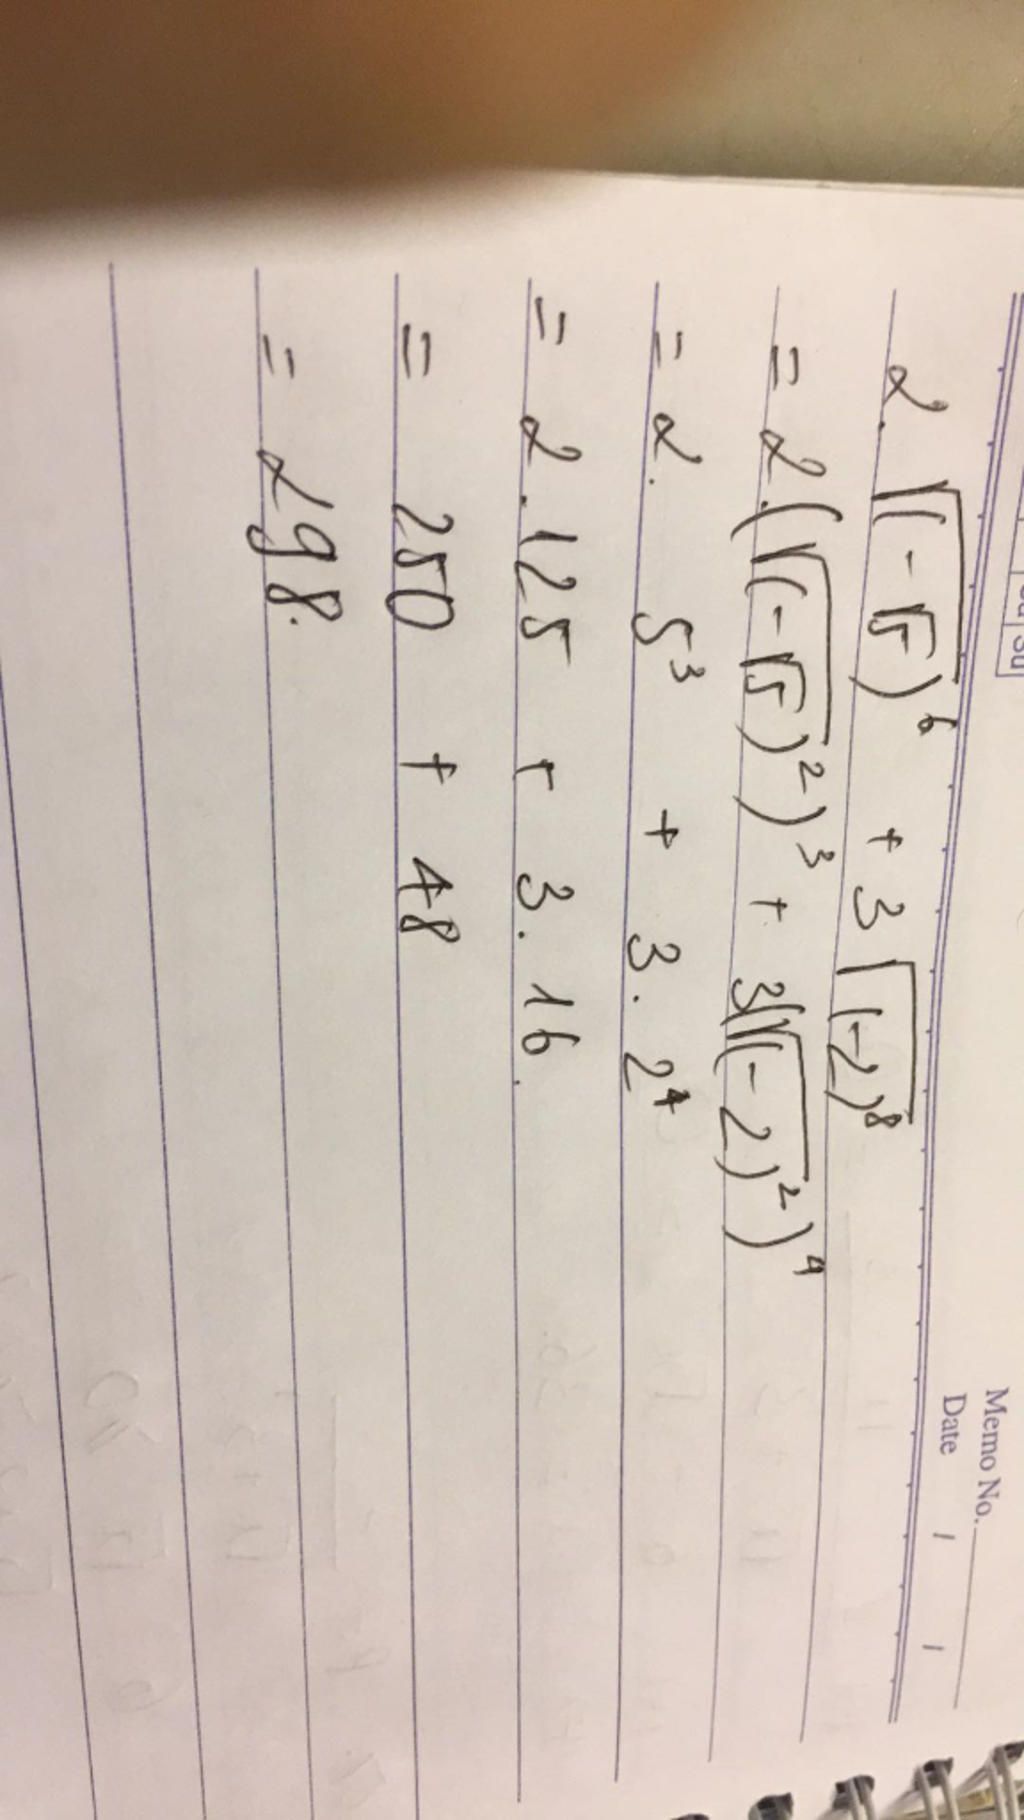 Sa Su
Memo No.
Date / /
2.√(-√5)⁶ + 3√(-2)⁸
= 2.(√(-√5)²)³ + 3(√(-2)²)⁴
= 2. 5³ + 3. 2⁴
= 2.125 + 3. 16.
= 250 + 48
= 298.